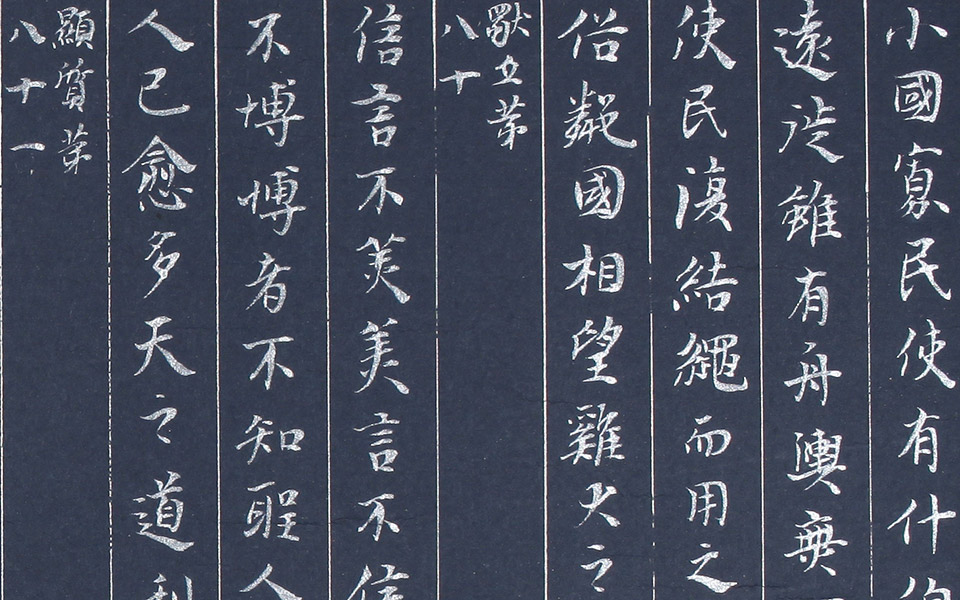 小國寡民使有什伯
遠徙雖有舟輿無
使民復結繩而用之
俗鄰國相望雞犬之
獸立第
八十
信言不美美言不信
不博博者不知聖人
人已愈多天之道利
顯質第
八十一